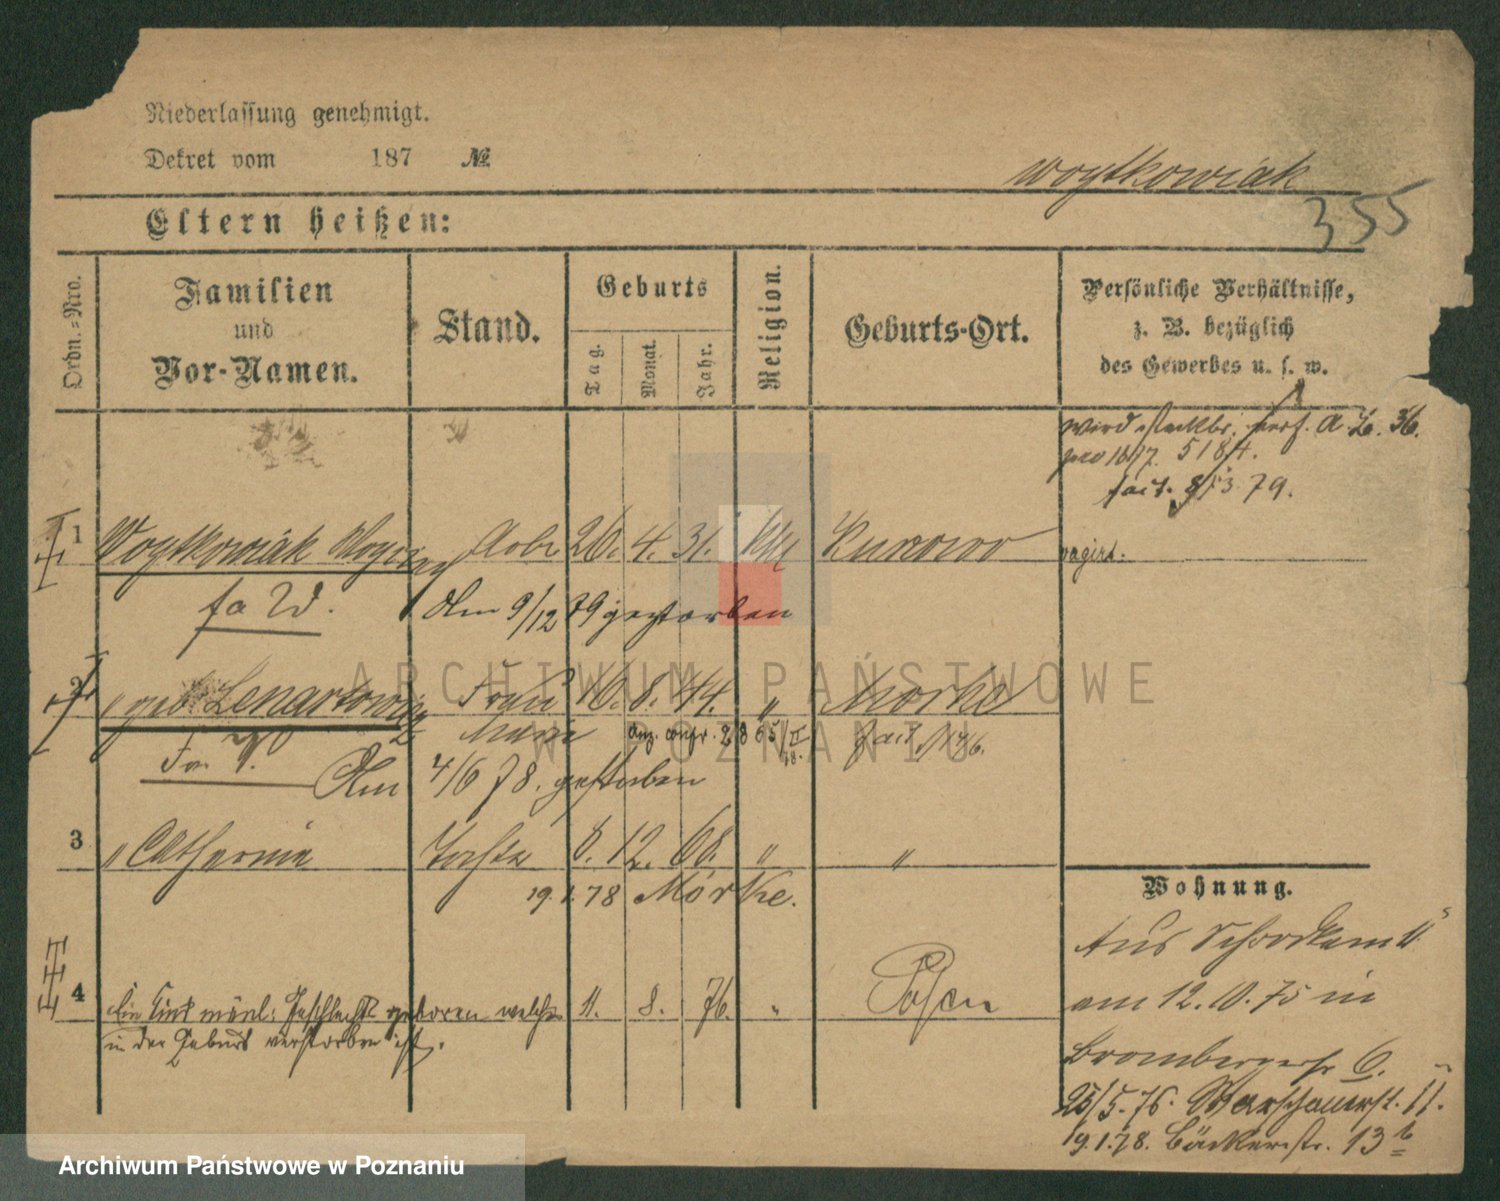 Niederlassung genehmigt.
Dekret vom 187 №
Woytkowiak
355
Eltern heißen:
Ordn.-Nro.
Familien
und
Vor-Namen.
Stand.
Geburts
Tag.
Monat.
Jahr.
Religion.
Geburts-Ort.
Persönliche Verhältnisse,
z. B. bezüglich
des Gewerbes u. s. w.
wird A. Z. 36.
pro 16/17. 5184.
79.
1 Woytkowiak Arb. 26. 4. 31. Kth vagirt.
fa W. Am 9/12 79 gestorben
2 " geb Lenartowicz Frau 16. 8. 44. " Morke
Marie
Am 4/6 78. gestorben
3 " Catharina Tochter 8. 12. 68. " "
19.1.78 Morke.
4 Ein Kind männl: Geschlechts geboren welches 11. 8. 76. " Posen
in der Geburt verstorben ist.
Wohnung.
Aus Schrodkam 11
am 12.10.75 in
Brombergerstr 6.
25/5.76. Warschauerst. 11.
19.1.78. Bäckerstr. 13b
ARCHIWUM PAŃSTWOWE
W POZNANIU
Archiwum Państwowe w Poznaniu